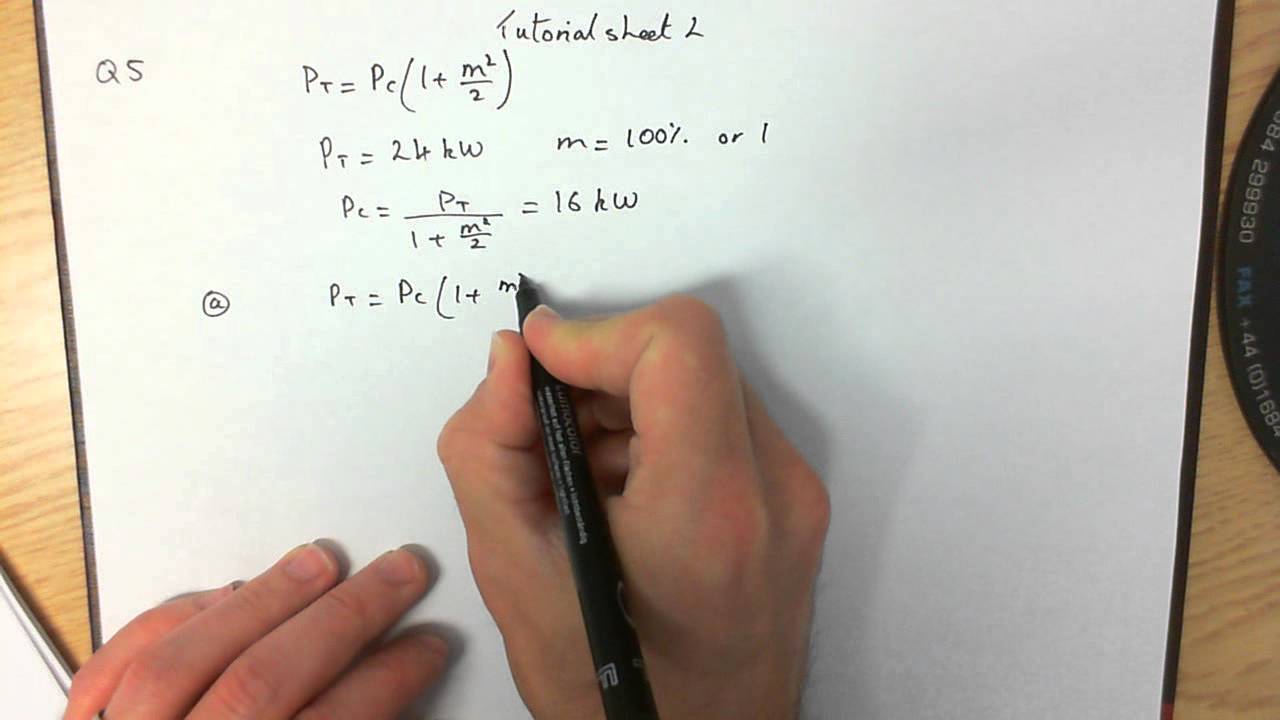 Tutorial sheet 2
Q5 P_T = P_C(1 + m²/2)
P_T = 24 kW m = 100% or 1
P_C = P_T / (1 + m²/2) = 16 kW
ⓐ P_T = P_C (1 + m
084 299930
FAX +44 (0)1684